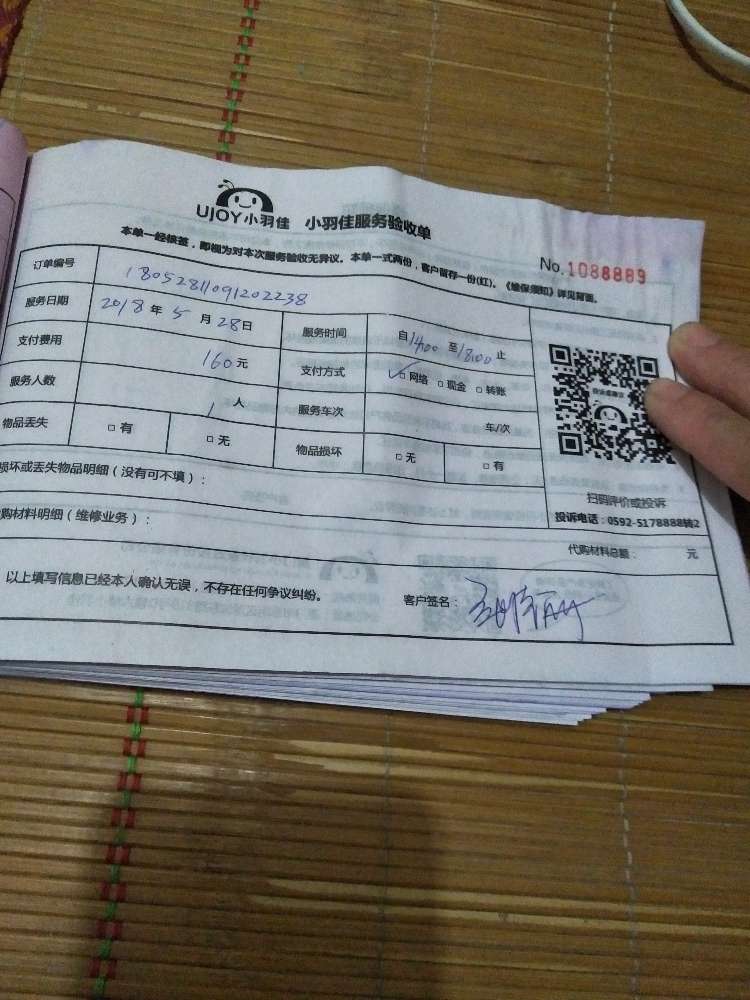 UJOY小羽佳 小羽佳服务验收单
本单一经核签，即视为对本次服务验收无异议。本单一式两份，客户留存一份(红)。《维保须知》详见背面。
No.1088889
订单编号 18052811091202238
服务日期 2018年5月28日 服务时间 自14:00至18:00止
支付费用 160元 支付方式 ✓□网络 □现金 □转账
服务人数 1人 服务车次 车/次
物品丢失 □有 □无 物品损坏 □无 □有
扫码评价或投诉
投诉电话：0592-5178888转2
损坏或丢失物品明细（没有可不填）：
购材料明细（维修业务）：
代购材料总额： 元
以上填写信息已经本人确认无误，不存在任何争议纠纷。 客户签名：